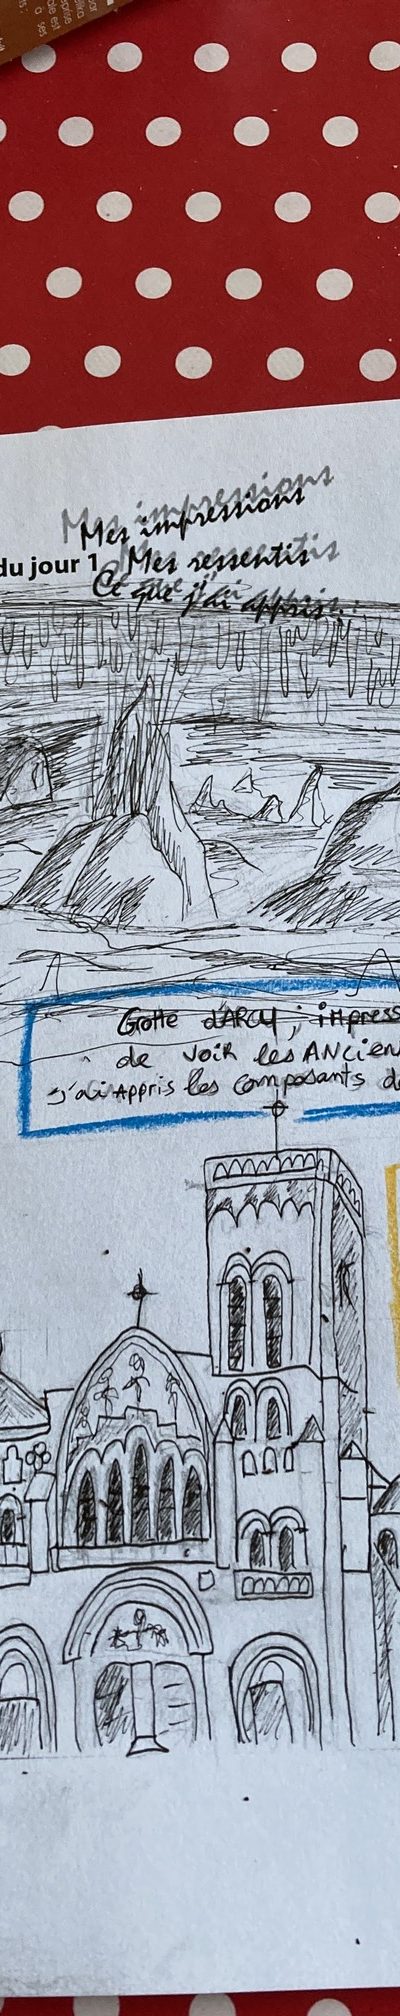 Mes impressions
du jour 1 Mes ressentis
Ce que j'ai appris.:
Grotte d'ARCY ; impress
de voir les ANCien
j'ai Appris les composants de